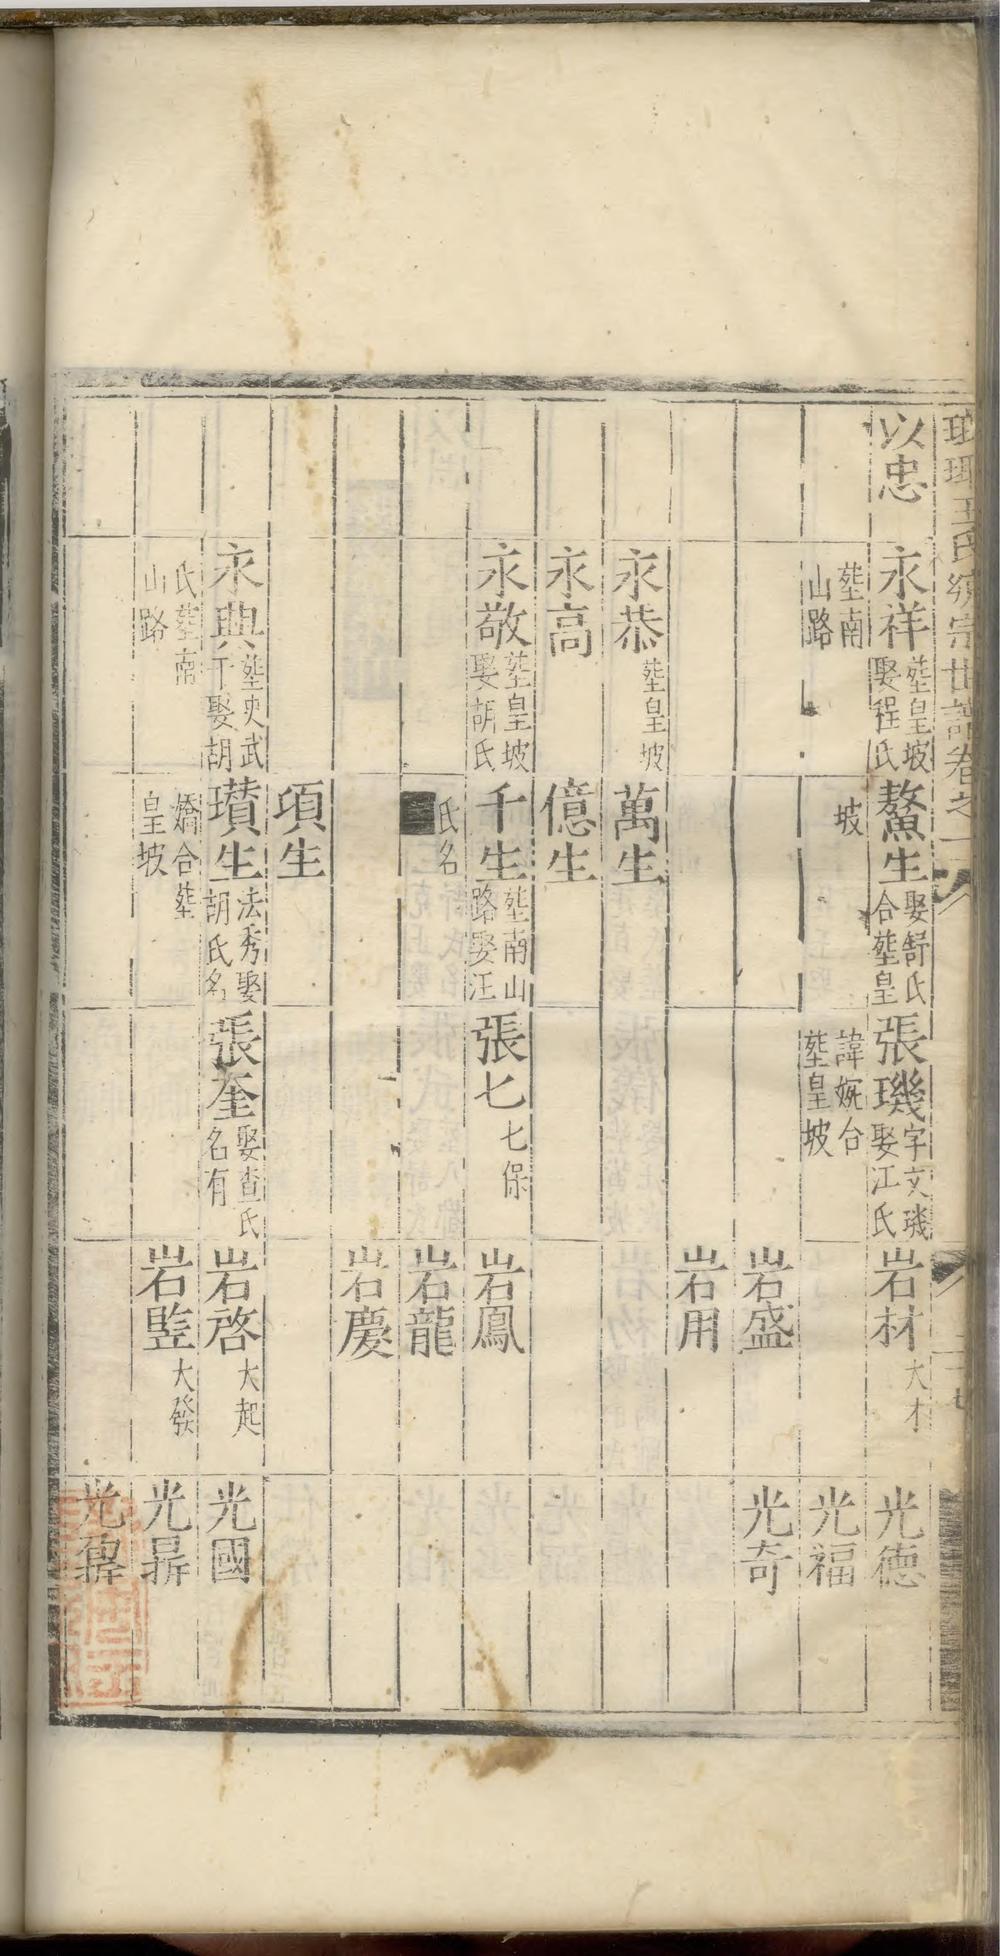 瑯琊王氏統宗世譜卷之
以忠
永祥 塟皇坡娶程氏
鰲生 娶舒氏合塟皇
張璣 字文璣娶江氏
岩材 大才
光德
塟南山路
坡
諱娓合塟皇坡
光福
岩盛
光奇
岩用
永恭 塟皇坡
萬生
永高
億生
永敬 塟皇坡娶胡氏
千生 塟南山路娶汪
張七 七保
岩鳳
氏名
岩龍
岩慶
項生
永典 塟吏武干娶胡
瓚生 法秀娶胡氏名
張奎 娶查氏名有
岩啓 大起
光國
氏塟南山路
嬌合塟皇坡
岩監 大發
光昇
光